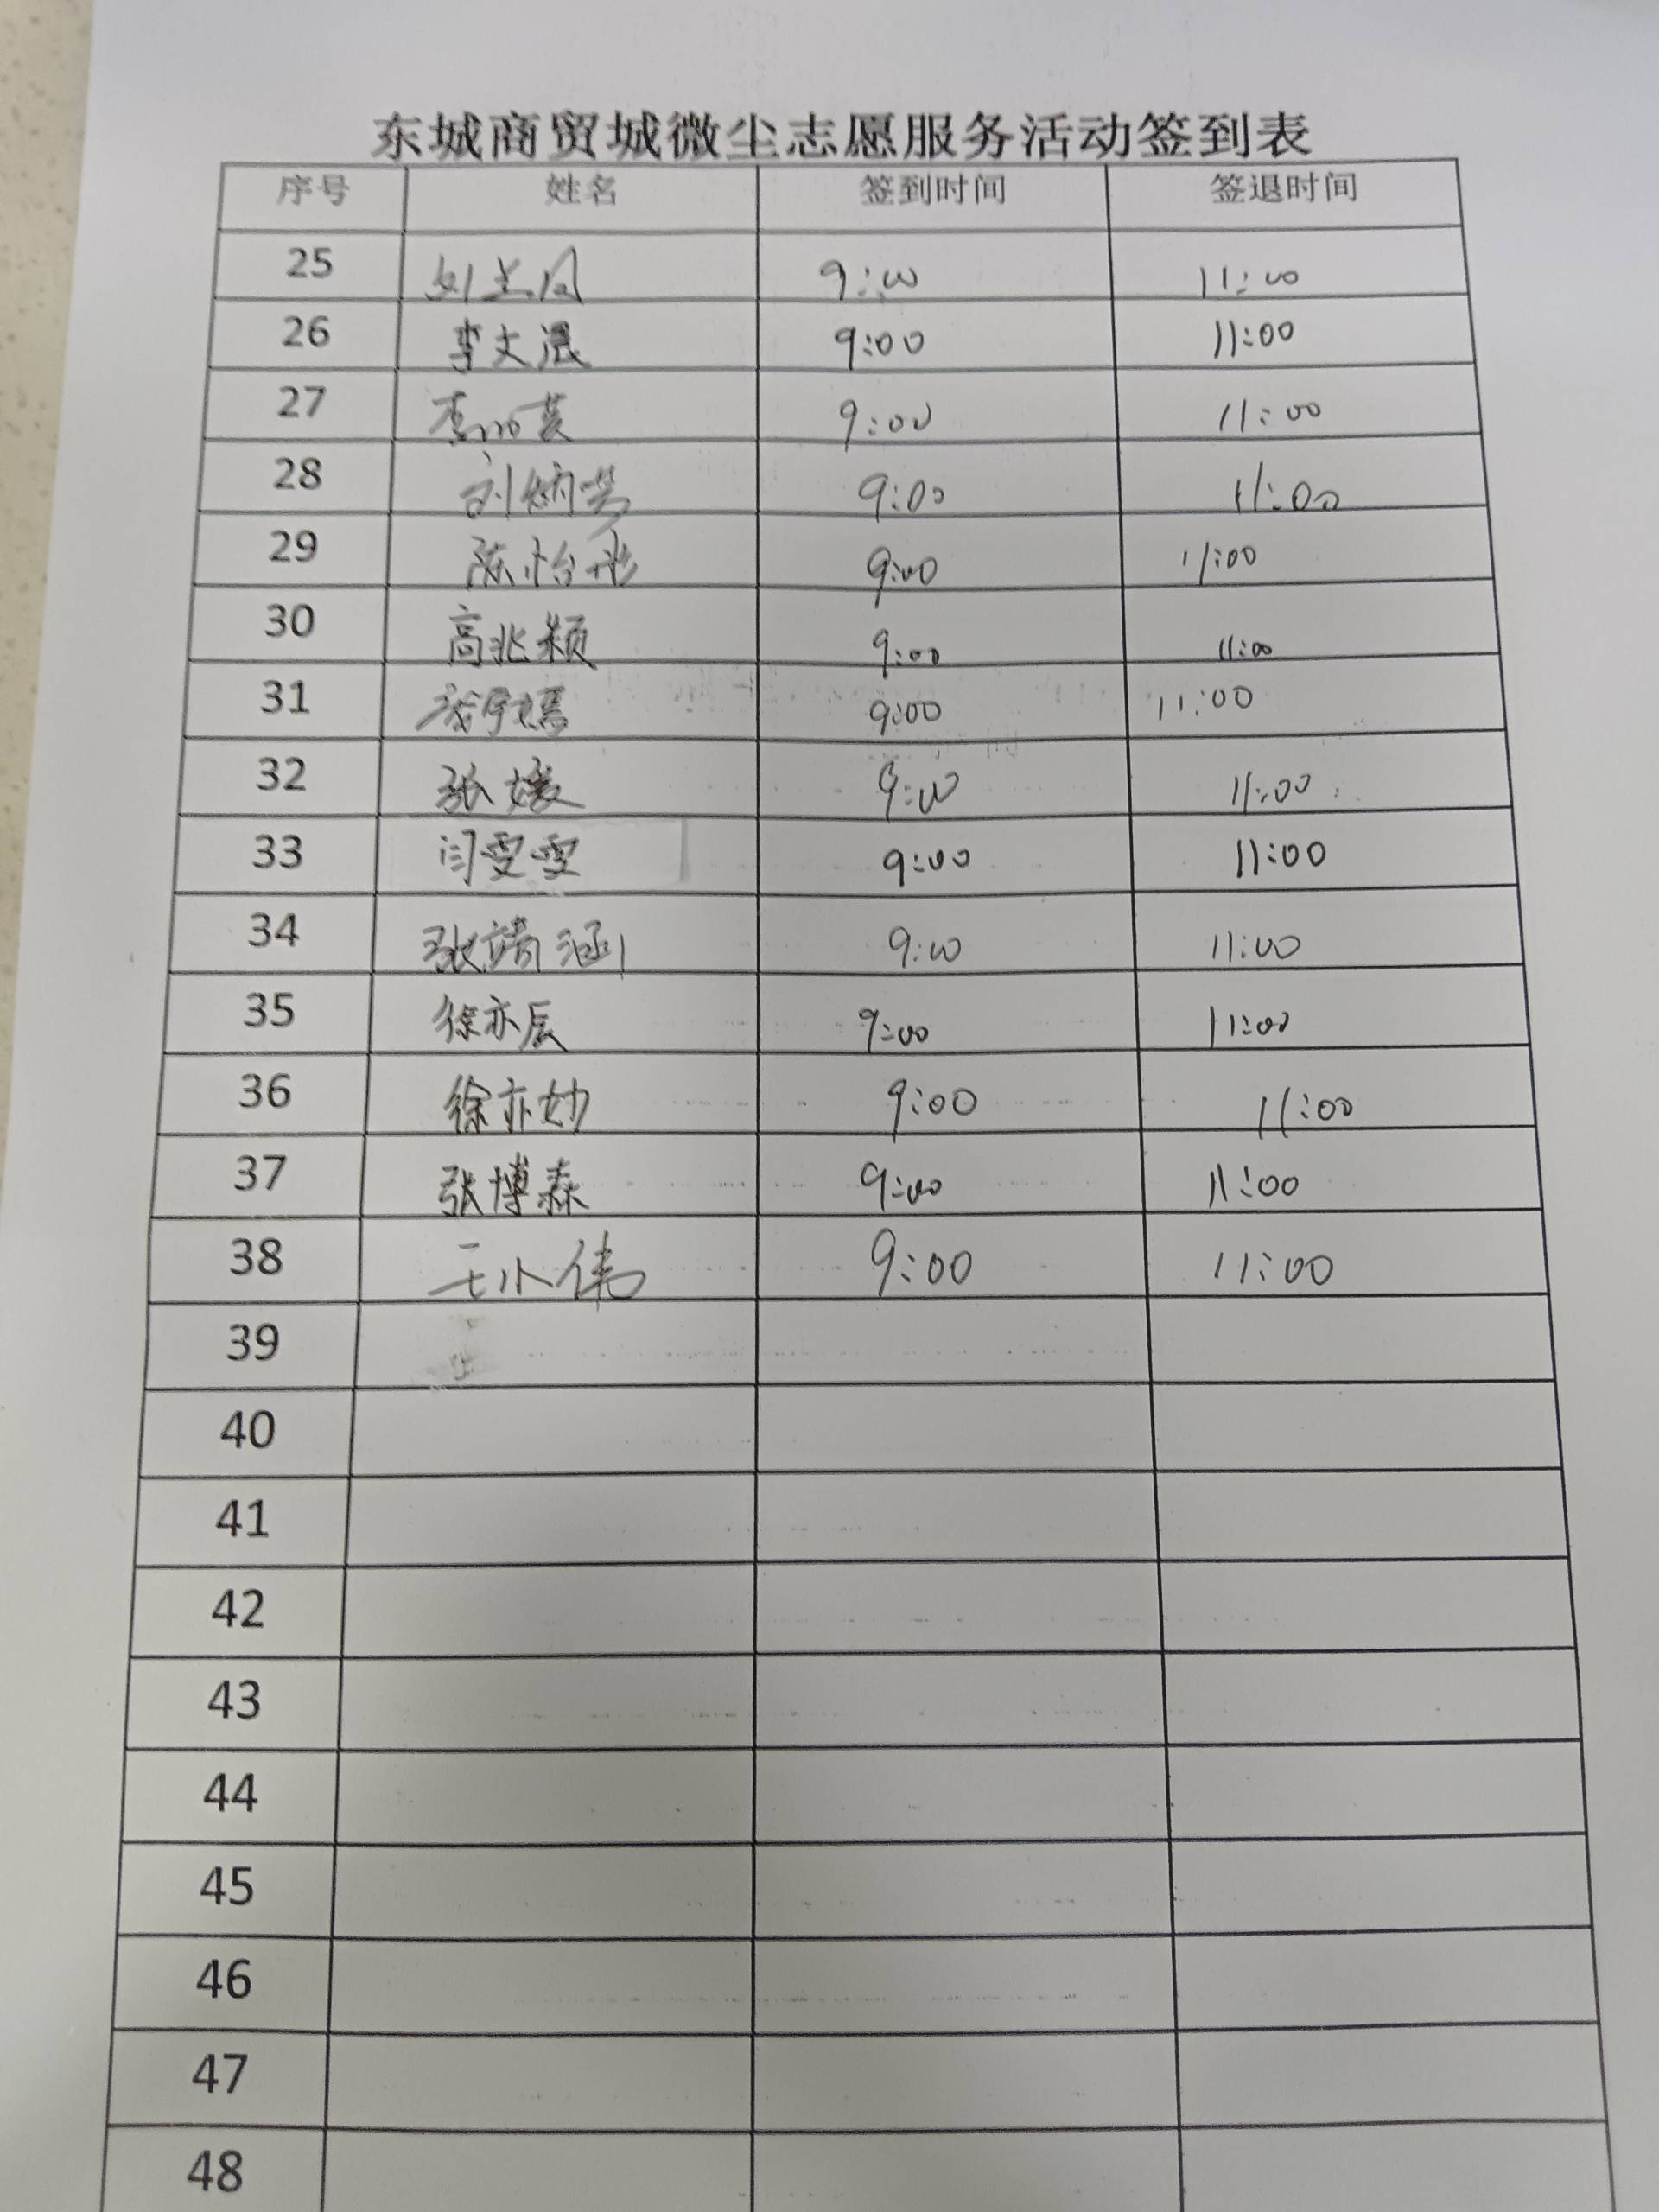 东城商贸城微尘志愿服务活动签到表
序号 姓名 签到时间 签退时间
25 9:00 11:00
26 李文 9:00 11:00
27 李 9:00 11:00
28 刘炳 9:00 11:00
29 陈怡彤 9:00 11:00
30 高兆颖 9:00 11:00
31 9:00 11:00
32 张媛 9:00 11:00
33 闫雯雯 9:00 11:00
34 张靖涵 9:00 11:00
35 徐亦辰 9:00 11:00
36 徐亦妙 9:00 11:00
37 张博森 9:00 11:00
38 王小伟 9:00 11:00
39
40
41
42
43
44
45
46
47
48